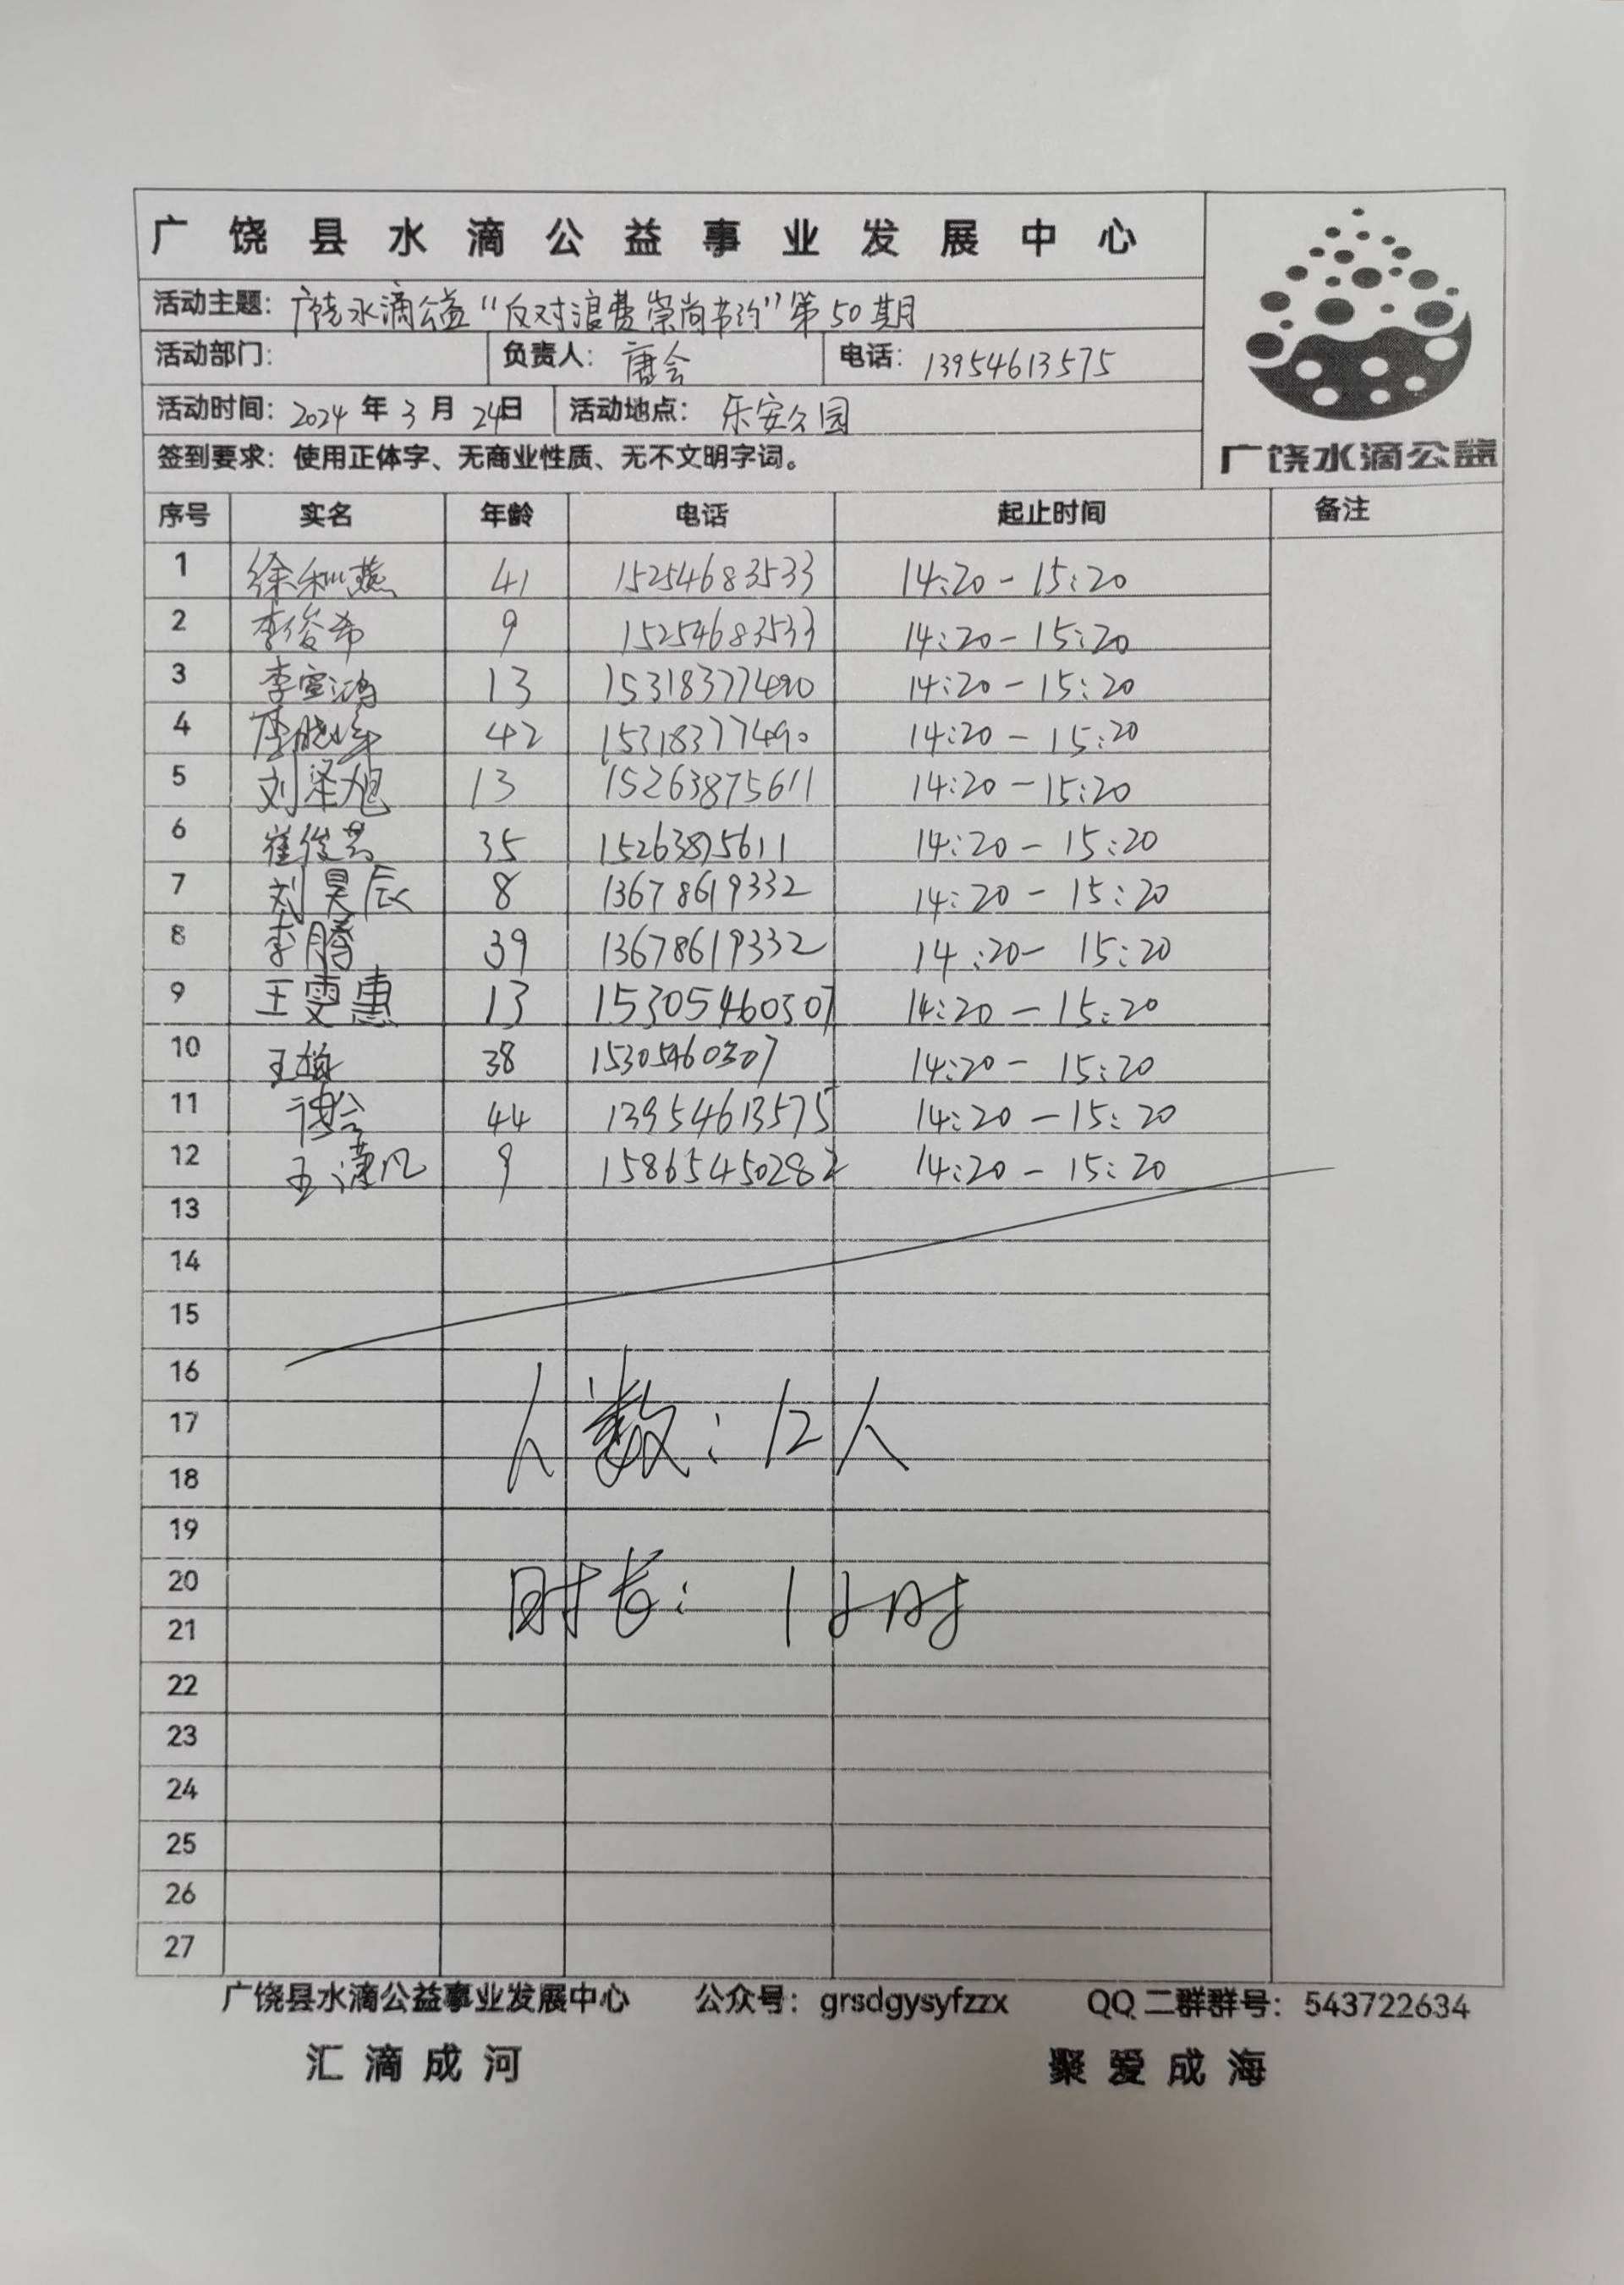 广饶县水滴公益事业发展中心
活动主题：广饶水滴公益“反对浪费崇尚节约”第50期
活动部门： 负责人：唐会 电话：13954613575
活动时间：2024年3月24日 活动地点：乐安公园
签到要求：使用正体字、无商业性质、无不文明字词。
广饶水滴公益
序号 实名 年龄 电话 起止时间 备注
1 徐秋燕 41 15254683533 14:20-15:20
2 李俊希 9 15254683533 14:20-15:20
3 李宣鸿 13 15318377490 14:20-15:20
4 李晓峰 42 15318377490 14:20-15:20
5 刘泽旭 13 15263875611 14:20-15:20
6 崔俊芳 35 15263875611 14:20-15:20
7 刘昊辰 8 13678619332 14:20-15:20
8 李腾 39 13678619332 14:20-15:20
9 王雯惠 13 15305460307 14:20-15:20
10 王梅 38 15305460307 14:20-15:20
11 44 13954613575 14:20-15:20
12 王潇凡 9 15865450282 14:20-15:20
13
14
15
16
17 人数：12人
18
19
20 时长：1小时
21
22
23
24
25
26
27
广饶县水滴公益事业发展中心 公众号：grsdgysyfzzx QQ二群群号：543722634
汇滴成河 聚爱成海